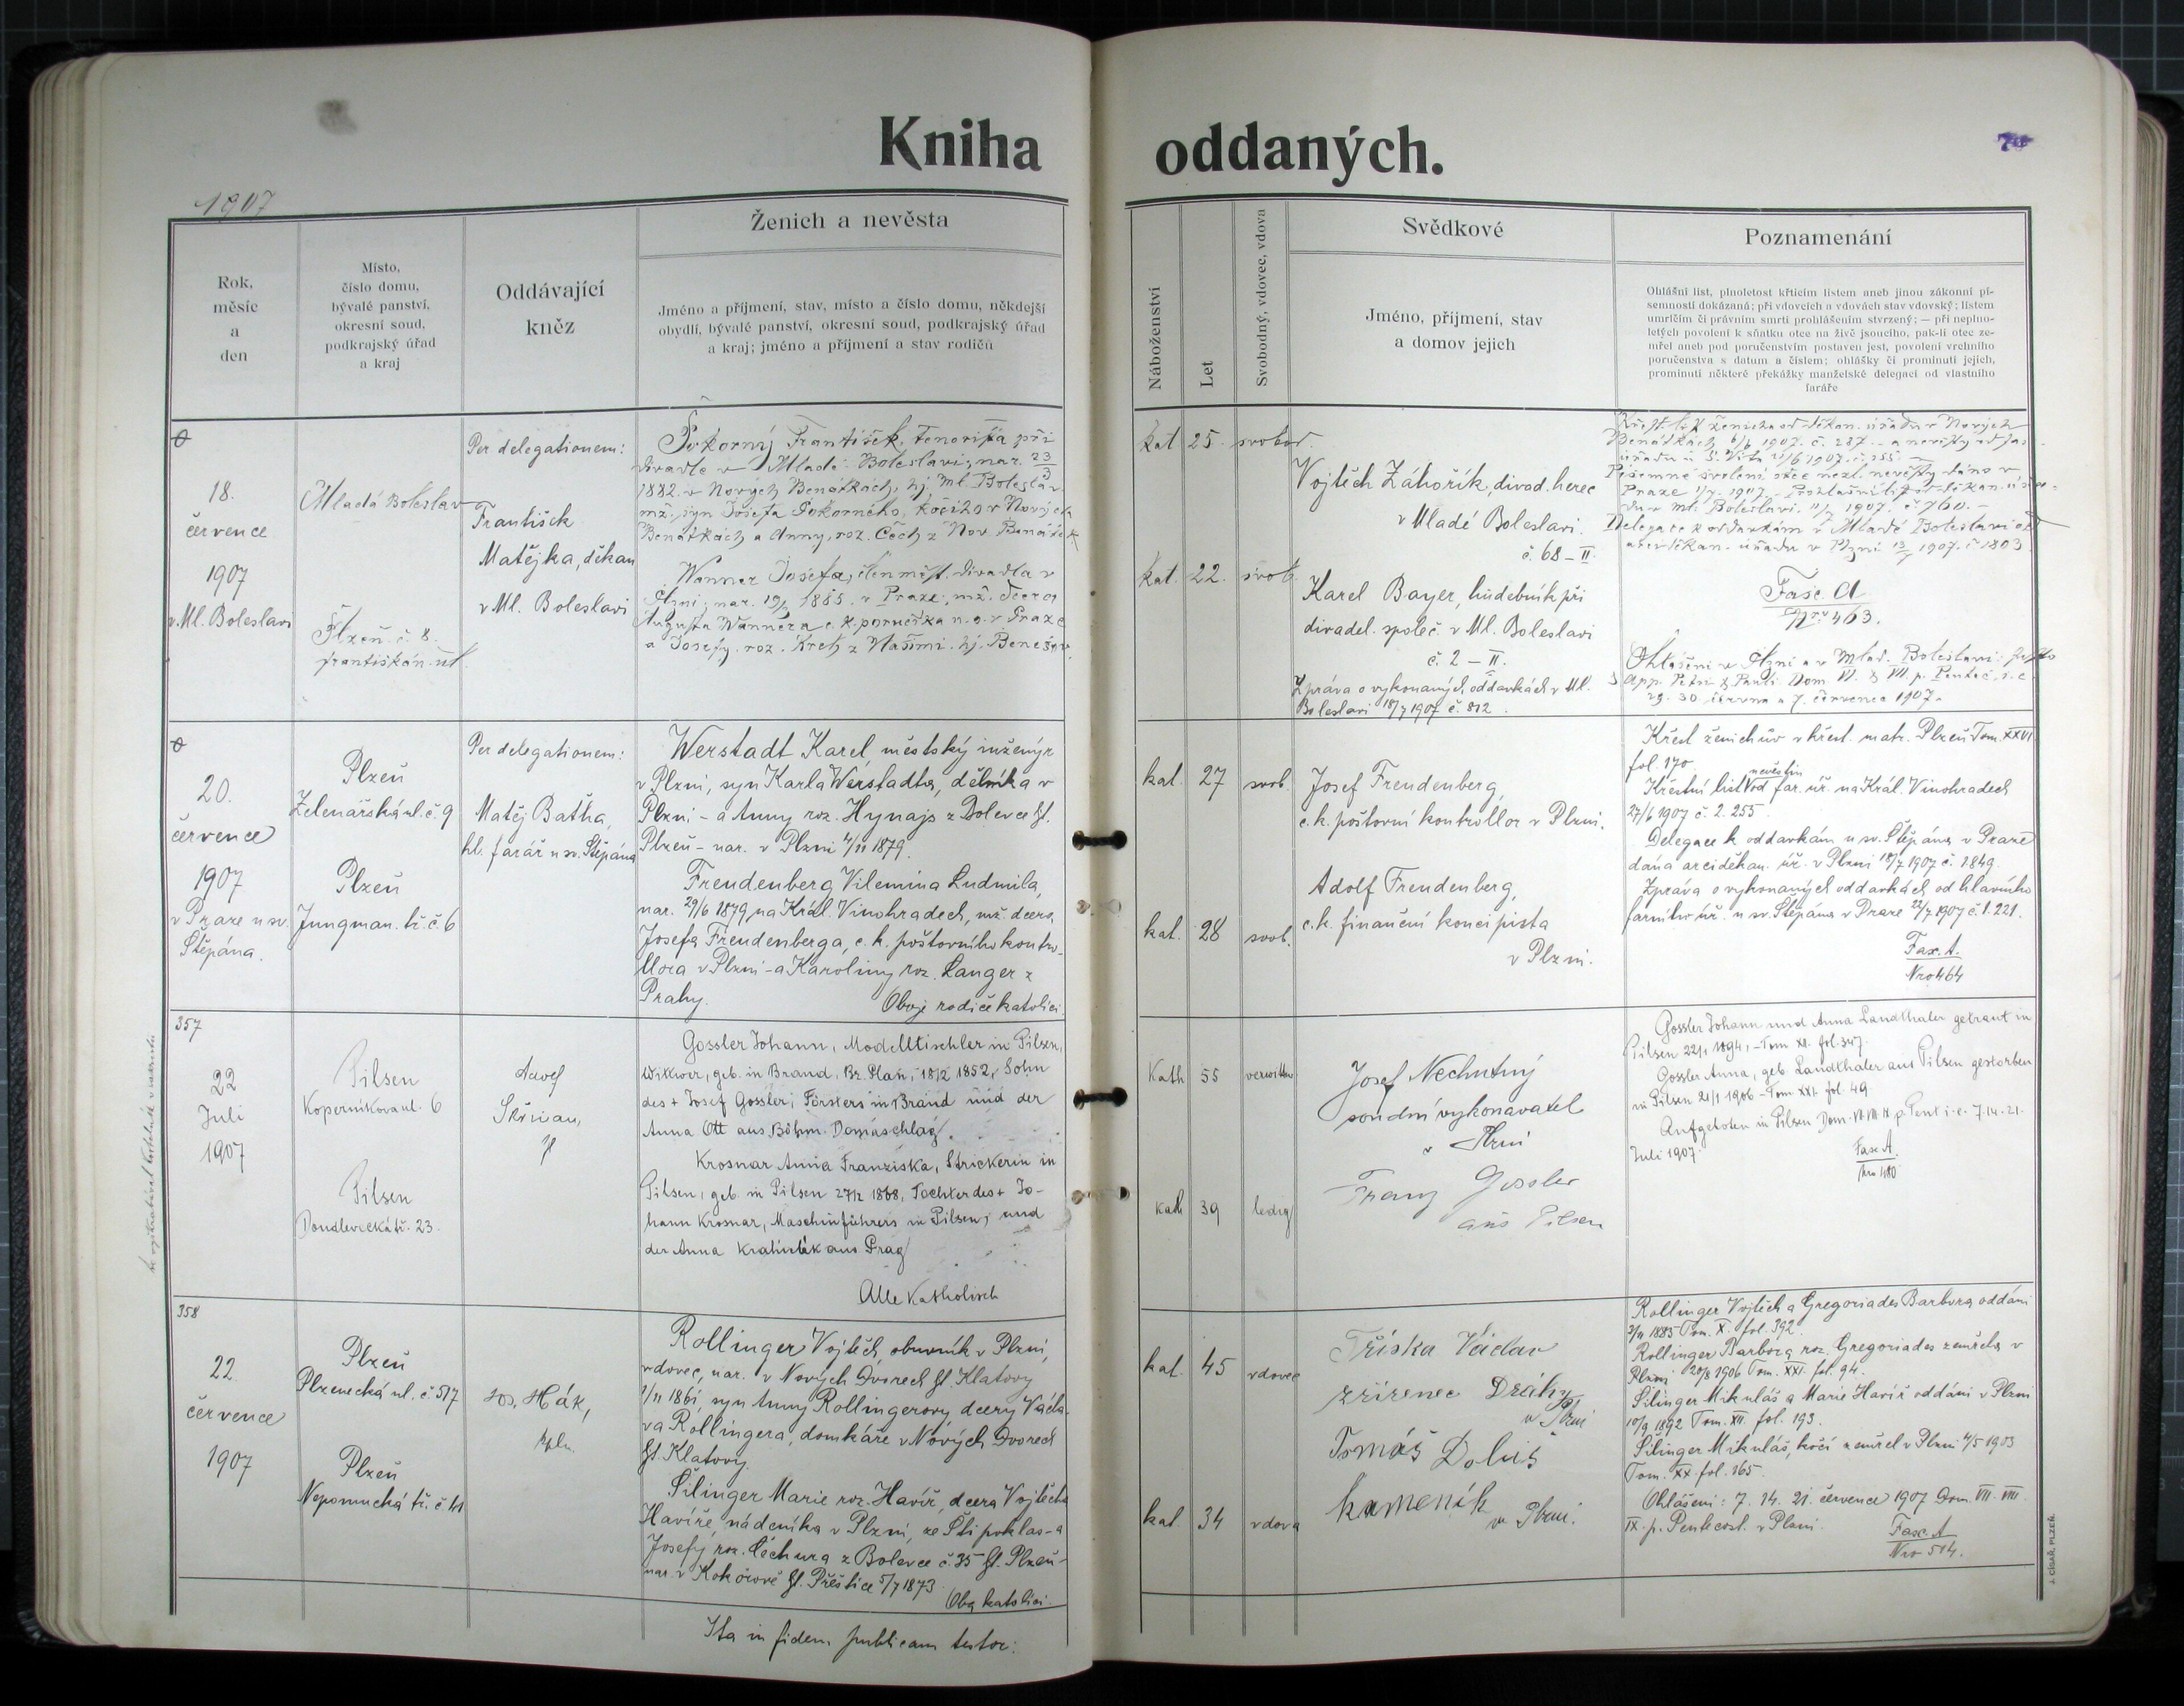 Kniha oddaných.
1907
Rok, měsíc a den
Místo, číslo domu, bývalé panství, okresní soud, podkrajský úřad a kraj
Oddávající kněz
Ženich a nevěsta
Jméno a příjmení, stav, místo a číslo domu, někdejší
obydlí, bývalé panství, okresní soud, podkrajský úřad
a kraj; jméno a příjmení a stav rodičů
Náboženství
Let
Svobodný, vdovec, vdova
Svědkové
Jméno, příjmení, stav
a domov jejich
Poznamenání
Ohlášní list, plnoletost křticím listem aneb jinou zákonní pí-
semností dokázaná; při vdovcích a vdovách stav vdovský; listem
umrlčím či právním smrti prohlášením stvrzený; — při neplno-
letých povolení k sňatku otce na živě jsoucího, pak-li otec ze-
mřel aneb pod poručenstvím postaven jest, povolení vrchního
poručenstva s datum a číslem; ohlášky či prominutí jejich,
prominutí některé překážky manželské delegací od vlastního
faráře
0
18.
července
1907
v Ml. Boleslavi
Mladá Boleslav
Plzeň č. 8.
františkán. ul.
Per delegationem:
František
Matějka, děkan
v Ml. Boleslavi
Pokorný František, tenorista při
divadle v Mladé Boleslavi, nar. 23/3
1882 v Nových Benátkách, hj. Ml. Boleslav
mž. syn Josefa Pokorného, kočího v Nových
Benátkách a Anny, roz. Čech z Nov. Benátek
Wanner Josefa, člen měst. divadla v
Plzni, nar. 1885 v Praze, mž. dcera
Augusta Wannera c. k. poručíka n. o. v Praze
a Josefy roz. Kreh z Vlašimi hj. Benešov.
kat. 25 svobod.
kat. 22. svob.
Vojtěch Záhořík, divad. herec
v Mladé Boleslavi.
č. 68 – II.
Karel Bayer, hudebník při
divadel. společ. v Ml. Boleslavi
č. 2 – II.
Zpráva o vykonaných oddavkách v Ml.
Boleslavi 18/7 1907 č. 812.
Křest. list ženicha od děkan. úřadu v Nových
Benátkách 1907. č. 287
Písemné svolení otce nezl. nevěsty dáno v
Praze 1907.
du v Ml. Boleslavi 1907. č. 760. –
Delegace k oddavkám v Mladé Boleslavi od
arciděkan. úřadu v Plzni 1907. č. 1803
Fasc. A
Nro 463.
Ohlášeni v Plzni a v Mlad. Boleslavi:
App. Petri & Pauli Dom. VI. & VII. p. Pentec. i. e.
29. 30. června a 7. července 1907.
0
20.
července
1907
v Praze u sv.
Štěpána.
Plzeň
Zelenářská ul. č. 9
Plzeň
Jungman. tř. č. 6
Per delegationem:
Matěj Baťha,
hl. farář u sv. Štěpána
Werstadt Karel, městský inženýr
v Plzni, syn Karla Werstadta, dělníka v
Plzni – a Anny roz. Hynajs z Bolevce hl.
Plzeň – nar. v Plzni 4/11 1879.
Freudenberg Vilemína Ludmila,
nar. 29/6 1879 na Král. Vinohradech, mž. dcera
Josefa Freudenberga, c. k. poštovního kontro-
llora v Plzni – a Karoliny roz. Langer z
Prahy.
Oboje rodiče katolíci
kat. 27 svob.
kat. 28 svob.
Josef Freudenberg,
c. k. poštovní kontrollor v Plzni.
Adolf Freudenberg,
c. k. finanční koncipista
v Plzni.
Křest ženichův v křest. matr. Plzeň Tom. XXVI
fol. 170
Křestní list nevěstin od far. úř. na Král. Vinohradech
27/6 1907 č. 2.255.
Delegace k oddavkám u sv. Štěpána v Praze
dána arciděkan. úř. v Plzni 18/7 1907 č. 1849.
Zpráva o vykonaných oddavkách od hlavního
farního úř. u sv. Štěpána v Praze 22/7 1907 č. 1.221.
Fasc. A.
Nro 464
357
22
Juli
1907
Pilsen
Kopernikova ul. 6
Pilsen
Doudlevecká tř. 23.
Gossler Johann, Modelltischler in Pilsen,
Witwer, geb. in Brand, Bz. Plan, 18/2 1852, Sohn
des + Josef Gossler, Försters in Brand und der
Anna Ott aus Böhm. Domaschlag.
Krosnar Anna Franziska, Strickerin in
Pilsen, geb. in Pilsen 27/2 1868, Tochter des + Jo-
hann Krosnar, Maschinführers in Pilsen, und
der Anna aus Prag
Alle Katholisch
Kath 55
kath 39 ledig
Josef Nechutný
soudní vykonavatel
v Plzni
Franz Gossler
aus Pilsen
Gossler Johann und Anna Landthaler getraut in
Pilsen 22/1 1894, – Tom XII. fol. 347.
Gossler Anna, geb. Landthaler aus Pilsen gestorben
in Pilsen 21/1 1906 – Tom XXI. fol. 49
Aufgeboten in Pilsen Dom. VII. VIII. IX p. Pent i. e. 7. 14. 21.
Juli 1907.
Fasc A.
Nro 480
358
22
července
1907
Plzeň
Plzenecká ul. č. 517
Plzeň
Nepomucká tř. č. 41
Jos. Hák,
kpln.
Rollinger Vojtěch, obuvník v Plzni,
vdovec, nar. v Nových Dvorech hl. Klatovy
1/11 1861, syn Anny Rollingerovy, dcery Václa-
va Rollingera, domkáře v Nových Dvorech
hl. Klatovy.
Šilinger Marie roz. Havíř, dcera Vojtěcha
Havíře, nádeníka v Plzni, ze Štipoklas – a
Josefy roz. Čechura z Bolevce č. 35 hl. Plzeň –
nar. v Kokořově hl. Přeštice 5/7 1873.
Oba katolíci.
kat. 45 vdovec
kat. 34 vdova
Tříska Václav
zřízenec Dráhy
v Plzni
Tomáš Doluš
kameník v Plzni.
Rollinger Vojtěch a Gregoriades Barbora oddáni
3/11 1885 Tom. X. fol. 392.
Rollinger Barbora roz. Gregoriades zemřela v
Plzni 20/8 1906 Tom. XXI. fol. 94.
Šilinger Mikuláš a Marie Havíř oddáni v Plzni
10/9 1892 Tom. XII. fol. 193.
Šilinger Mikuláš, kočí zemřel v Plzni 4/5 1903
Tom. XX fol. 165.
Ohlášeni: 7. 14. 21. července 1907 Dom. VII. VIII.
IX. p. Pentecost. v Plzni.
Fasc. A
Nro 514.
Ita in fidem publicam testor:
J. CÍSAŘ, PLZEŇ.